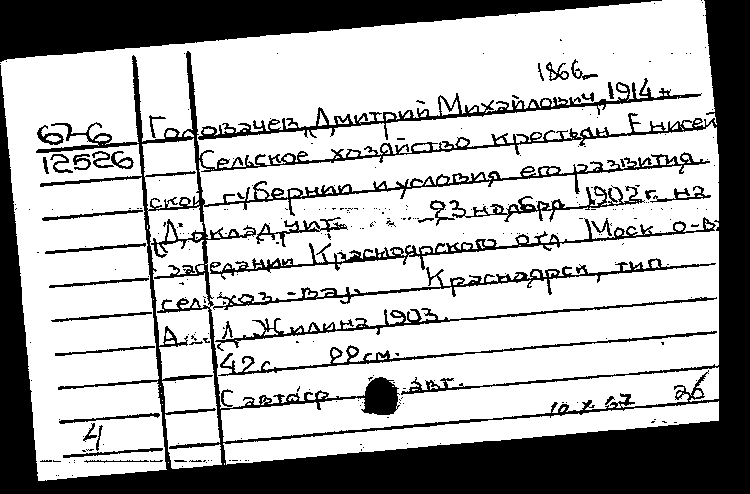 1866-
67-6 Головачев, Дмитрий Михайлович, 1914 г.
12526 Сельское хозяйство крестьян Енисей
ской губернии и условия его развития.
Доклад, чит. 23 ноября 1902 г. на
заседании Красноярского отд. Моск. о-ва
сел. хоз.-ва). Красноярск, тип.
А. Д. Жилина, 1903.
42 с. 22 см.
С автогр. авт.
4 10.X.67 26